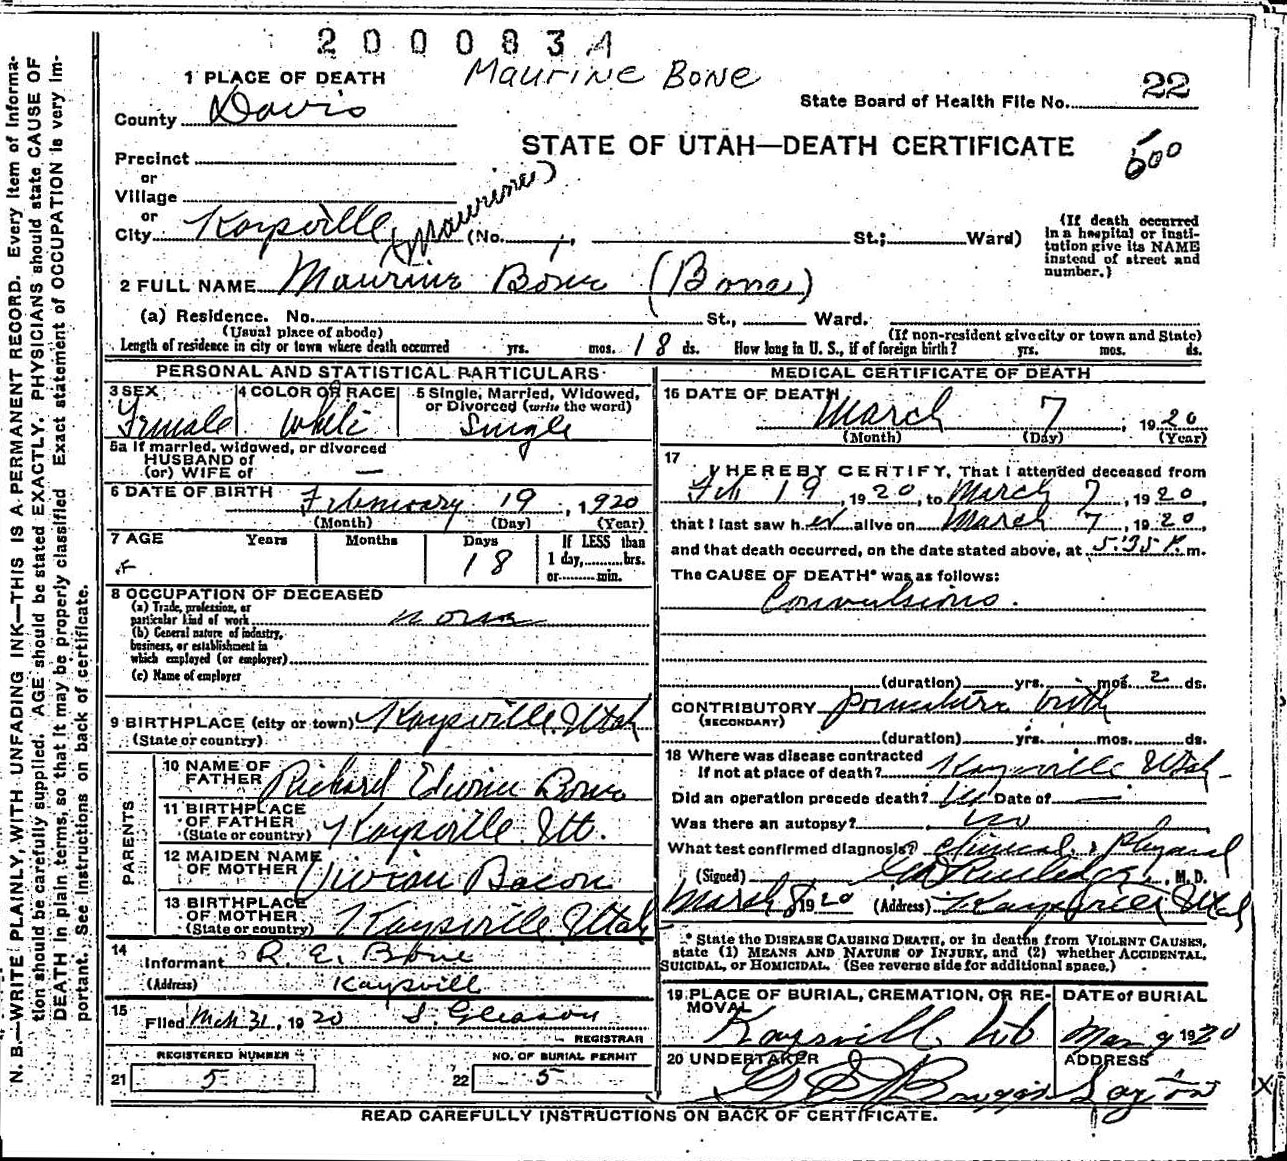 2000834
Maurine Bone
1 PLACE OF DEATH
State Board of Health File No. 22
County Davis
STATE OF UTAH—DEATH CERTIFICATE
500
Precinct
or
Village
or
City Kaysville (No. St.; Ward)
(Maurine)
(If death occurred
in a hospital or insti-
tution give its NAME
instead of street and
number.)
2 FULL NAME Maurine Bone (Bone)
(a) Residence. No. St., Ward.
(Usual place of abode) (If non-resident give city or town and State)
Length of residence in city or town where death occurred yrs. mos. 18 ds. How long in U. S., if of foreign birth? yrs. mos. ds.
PERSONAL AND STATISTICAL PARTICULARS
3 SEX
Female
4 COLOR OR RACE
White
5 Single, Married, Widowed,
or Divorced (write the word)
Single
5a If married, widowed, or divorced
HUSBAND of
(or) WIFE of —
6 DATE OF BIRTH February 19, 1920
(Month) (Day) (Year)
7 AGE Years Months Days If LESS than
18 1 day, hrs.
or min.
8 OCCUPATION OF DECEASED
(a) Trade, profession, or
particular kind of work none
(b) General nature of industry,
business, or establishment in
which employed (or employer)
(c) Name of employer
9 BIRTHPLACE (city or town) Kaysville, Utah
(State or country)
PARENTS
10 NAME OF
FATHER Richard Edwin Bone
11 BIRTHPLACE
OF FATHER
(State or country) Kaysville Ut.
12 MAIDEN NAME
OF MOTHER Vivian Bacon
13 BIRTHPLACE
OF MOTHER
(State or country) Kaysville Utah
14
Informant R. E. Bone
(Address) Kaysville
15
Filed Mch 31, 1920 S. Gleason
REGISTRAR
REGISTERED NUMBER
21 5
NO. OF BURIAL PERMIT
22 5
MEDICAL CERTIFICATE OF DEATH
16 DATE OF DEATH
March 7, 1920
(Month) (Day) (Year)
17
I HEREBY CERTIFY, That I attended deceased from
Feb 19 1920, to March 7, 1920,
that I last saw her alive on March 7, 1920
and that death occurred, on the date stated above, at 5:35 P. m.
The CAUSE OF DEATH* was as follows:
Convulsions.
(duration) yrs. mos. 2 ds.
CONTRIBUTORY premature birth
(SECONDARY)
(duration) yrs. mos. ds.
18 Where was disease contracted
If not at place of death? Kaysville Utah
Did an operation precede death? no Date of —
Was there an autopsy? no
What test confirmed diagnosis? Clinical & Physical
(Signed) M. D.
March 8 1920 (Address) Kaysville Utah
* State the DISEASE CAUSING DEATH, or in deaths from VIOLENT CAUSES,
state (1) MEANS AND NATURE OF INJURY, and (2) whether ACCIDENTAL,
SUICIDAL, or HOMICIDAL. (See reverse side for additional space.)
19 PLACE OF BURIAL, CREMATION, OR RE-
MOVAL
Kaysville Ut
DATE of BURIAL
Mar 9 1920
20 UNDERTAKER
ADDRESS
Layton
READ CAREFULLY INSTRUCTIONS ON BACK OF CERTIFICATE.
N. B.—WRITE PLAINLY, WITH UNFADING INK—THIS IS A PERMANENT RECORD. Every item of informa-
tion should be carefully supplied. AGE should be stated EXACTLY. PHYSICIANS should state CAUSE OF
DEATH in plain terms, so that it may be properly classified. Exact statement of OCCUPATION is very im-
portant. See instructions on back of certificate.